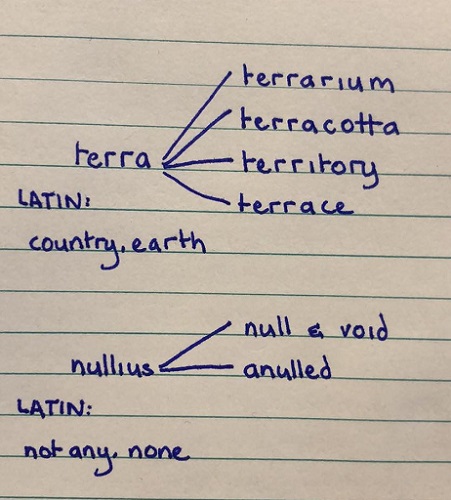 terrarium
terracotta
terra
territory
LATIN:
terrace
country, earth
null & void
nullius
anulled
LATIN:
not any, none